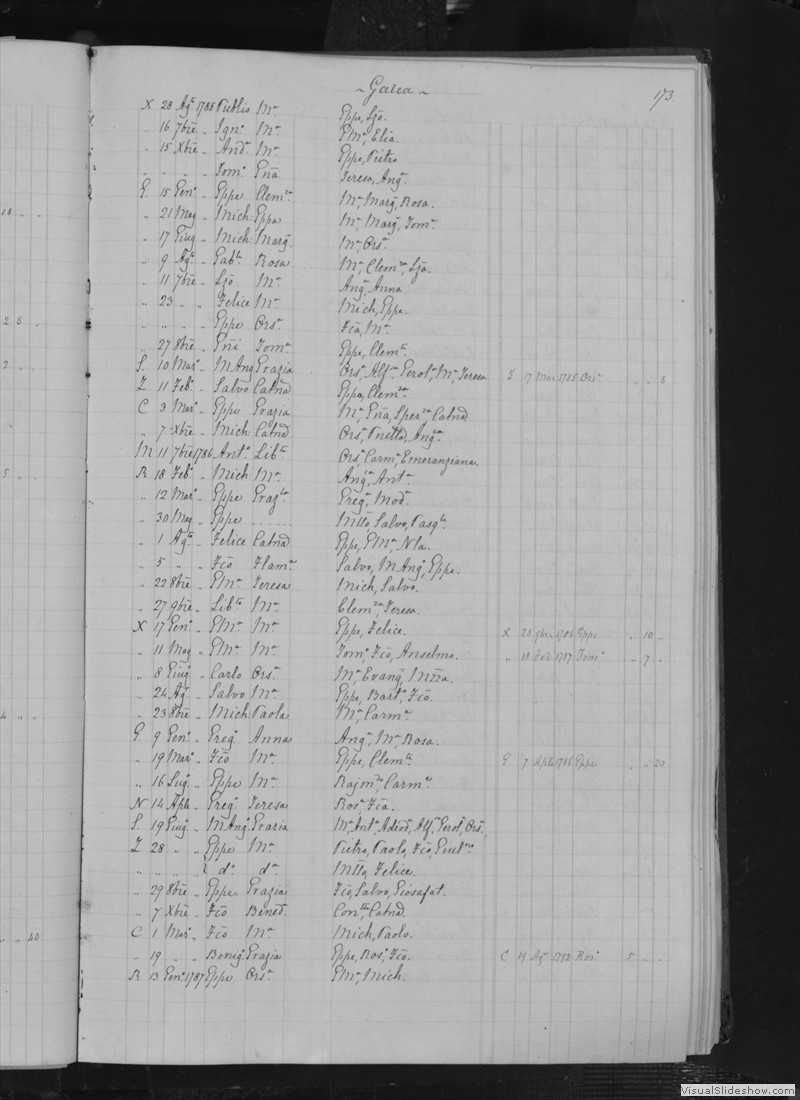 ~ Garcia ~
173.
X 28 Agº 1785 Publio Mª Eppe, Ljo.
" 16 7bre " Ignº Mª PMª, Elia.
" 15 Xbre " Andª Mª Eppe, Pietro
" " " " Tomº Enã Teresa, Angª
G 15 Genº " Eppe Clemza Mª Margª, Rosa.
" 21 Mag " Mich Eppa Mª, Margª, Tomª.
" 17 Giug " Mich Margª Mª, Orsª.
" 9 Agº " Gable Rosa Mª, Clemza, Ljo.
" 11 7bre " Ljo Mª Angª, Anna
" 23 " " Felice Mª Mich, Eppe.
" " " " Eppe Orsª Fca, Mª.
" 27 8bre " Eppe Tomª Eppe, Clemte.
S. 10 Marº " M Ang Grazia Orsª, Alfª, Gerolª, Mª, Teresa S 17 Mar 1785 Orsª " " 6
Z 11 Febº " Salvo Catnã Eppa, Clemza.
C 3 Marº " Eppe Grazia Mª, Enã, Sperza Catnã
" 7 Xbre " Mich Catnã Orsª, Pnetta, Angca
M 11 7bre 1786 Antº Libta Orsª, Carmª, Emeranziana.
R 18 Febº " Mich Mª Angca, Antª.
" 12 Marº " Eppe Grazta Gregº, Modª.
" 30 Mag " Eppe ........ Mtto, Salvo, Pasqle.
" 1 Agº " Felice Catnã Eppe, PMª, Nla.
" 5 " " Fco Flamª Salvo, M Angº, Eppe.
" 22 8bre " PMª Teresa Mich, Salvo.
" 27 9bre " Libto Mª Clemza, Teresa.
X 17 Genº " PMª Mª Eppe, Felice. X 28 9bre 1786 Eppe " 10 "
" 11 Mag " PMª Mª Tomº, Fco, Anselmo. " 18 1787 Tomº " 7 "
" 8 Giugº " Carlo Orsª Mª, Evangª, Mzza.
" 24 Agº " Salvo Mª Eppe, Bartº, Fco.
" 23 8bre " Mich Paola Mª, Carmª.
G. 9 Genº " Gregº Anna Angª, Mª, Rosa.
" 19 Marº " Fco Mª Eppe, Clemte. G 7 Aple 1786 Eppe " " 20
" 16 Lugº " Eppe Mª Rajmdo, Carmº.
N 14 Aple " Gregº Teresa Rosª, Fca.
S. 19 Giugº " M Angº Grazia Mª, Antª, Adeod, Alfª, Gerolª, Orsª.
Z 28 " " Eppe Mª Pietro, Paolo, Fco, Giulno
" " " " dº dª Mtto, Felice.
" 29 8bre " Eppe Grazia Fco, Salvo, Giosafat.
" 7 Xbre " Fco Benedª Conta, Catnã.
C 1 Marº " Fco Mª Mich, Paolo.
" 19 " " Benigº Grazia Eppe, Rosº, Fco. C 19 Agº 1792 Rosº 5 " "
R 13 Genº 1787 Eppe Orsª PMª, Mich.
VisualSlideshow.com